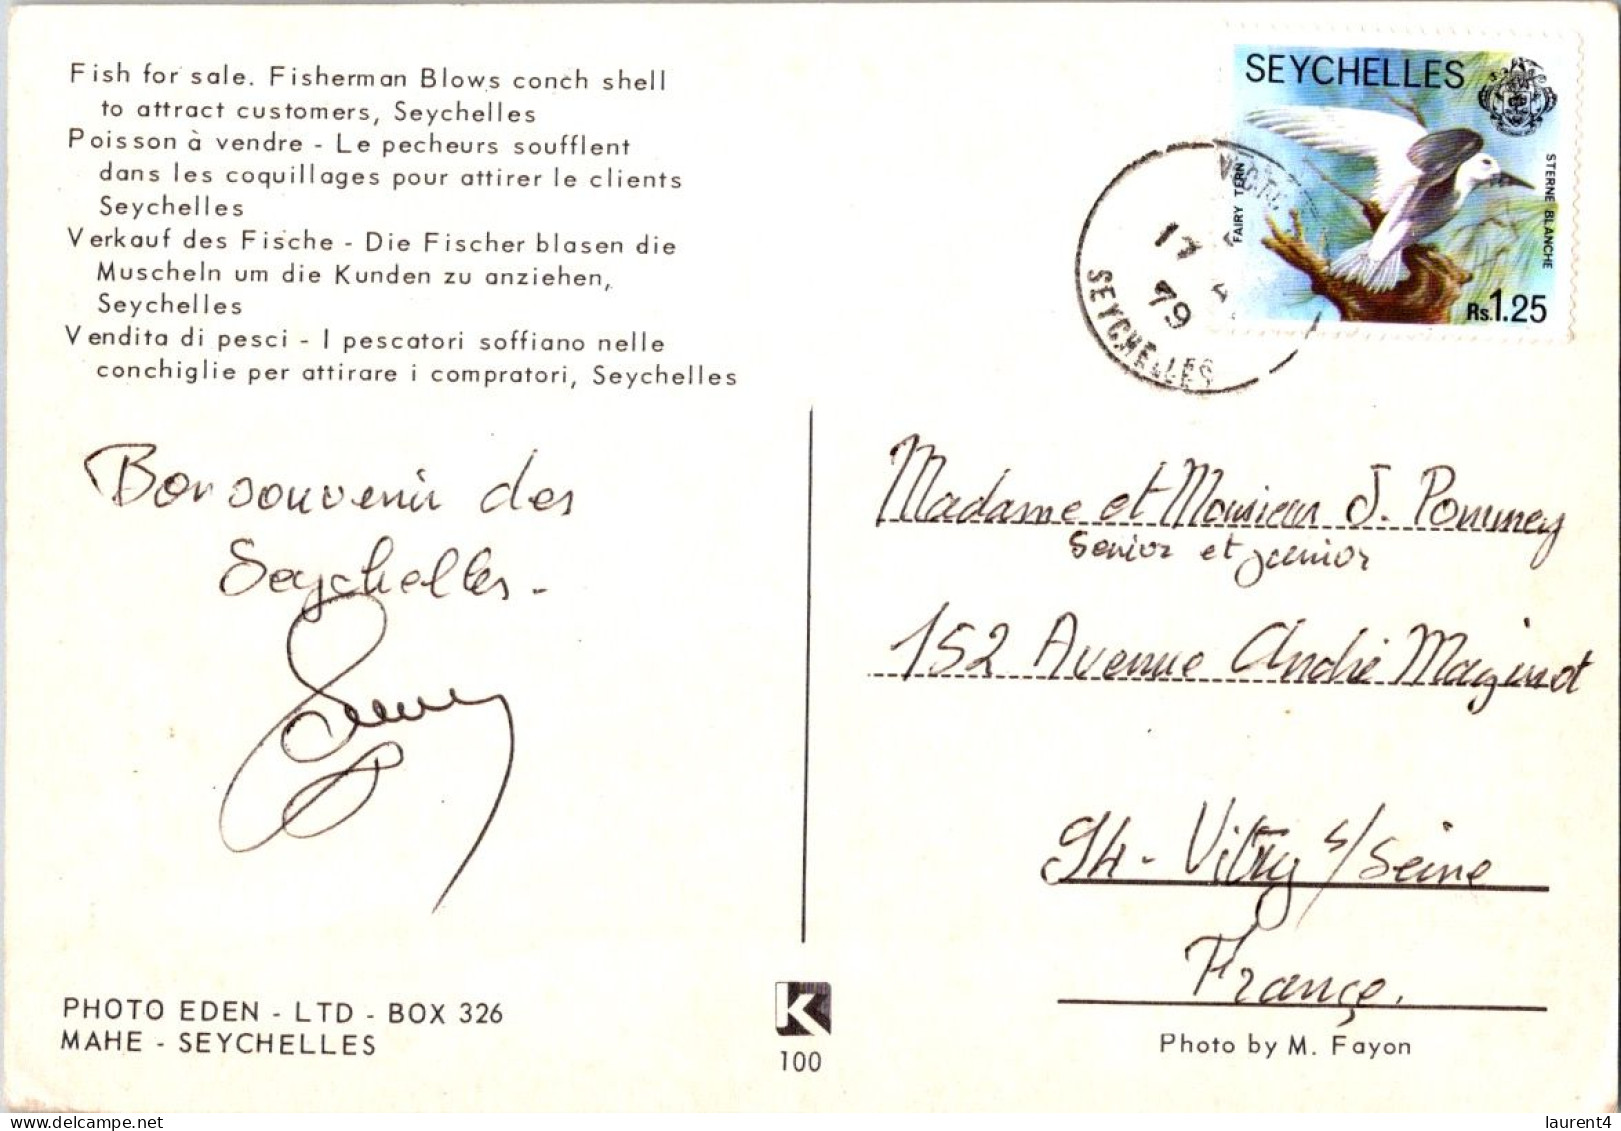 Fish for sale. Fisherman Blows conch shell
to attract customers, Seychelles
Poisson à vendre - Le pecheurs soufflent
dans les coquillages pour attirer le clients
Seychelles
Verkauf des Fische - Die Fischer blasen die
Muscheln um die Kunden zu anziehen,
Seychelles
Vendita di pesci - I pescatori soffiano nelle
conchiglie per attirare i compratori, Seychelles
SEYCHELLES
FAIRY TERN
STERNE BLANCHE
Rs.1.25
17
79
SEYCHELLES
Bon souvenir des
Seychelles.
Madame et Monsieur J. Pommey
Senior et junior
152 Avenue André Maginot
94 - Vitry s/Seine
France.
PHOTO EDEN - LTD - BOX 326
MAHE - SEYCHELLES
K
100
Photo by M. Fayon
laurent4